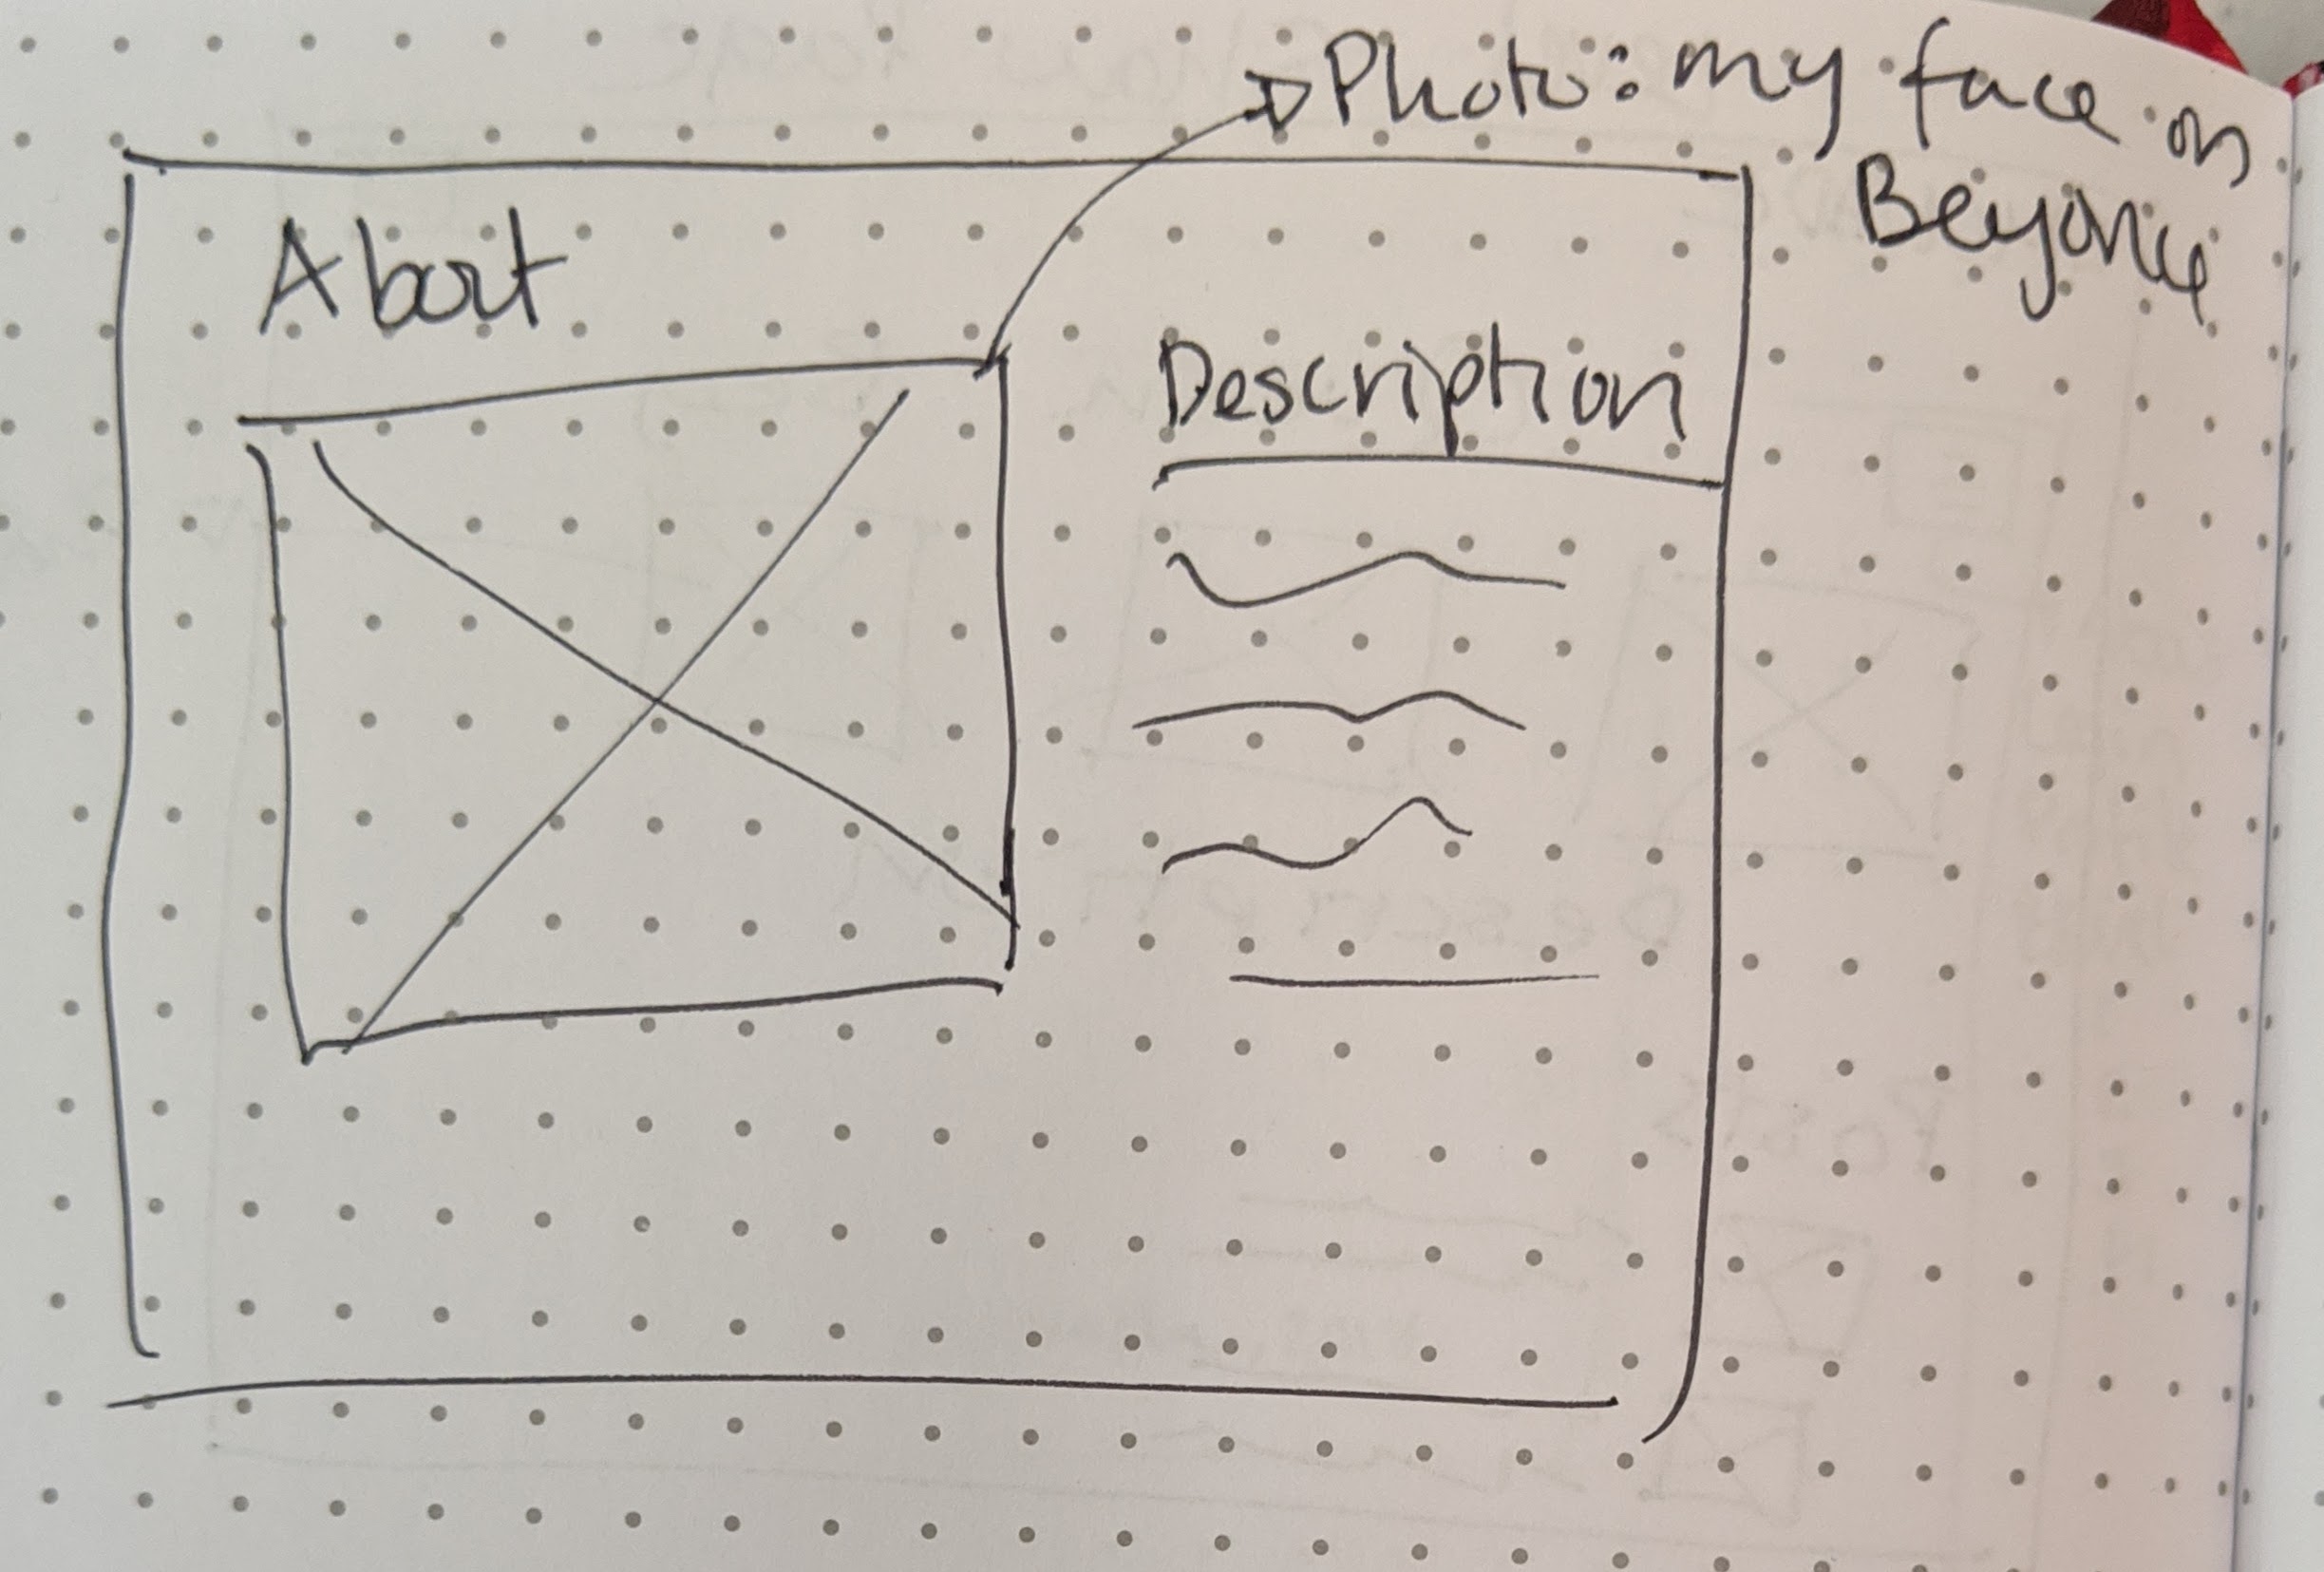 Photo: my face on
Beyonce
About
Description